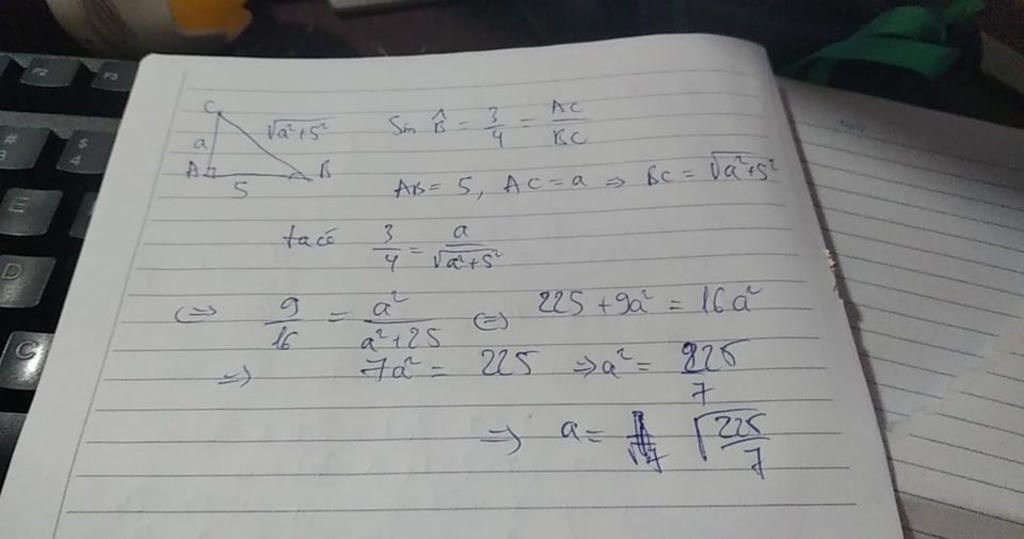 F2 F3
# 3 $ 4
E
D
C
C
a √a²+5²
A B
5
Sin B̂ = 3/4 = AC/BC
AB = 5, AC = a ⇒ BC = √a²+5²
ta có 3/4 = a/√a²+5²
⇔ 9/16 = a²/a²+25 ⇔ 225 + 9a² = 16a²
⇒ 7a² = 225 ⇒ a² = 225/7
⇒ a = √225/7